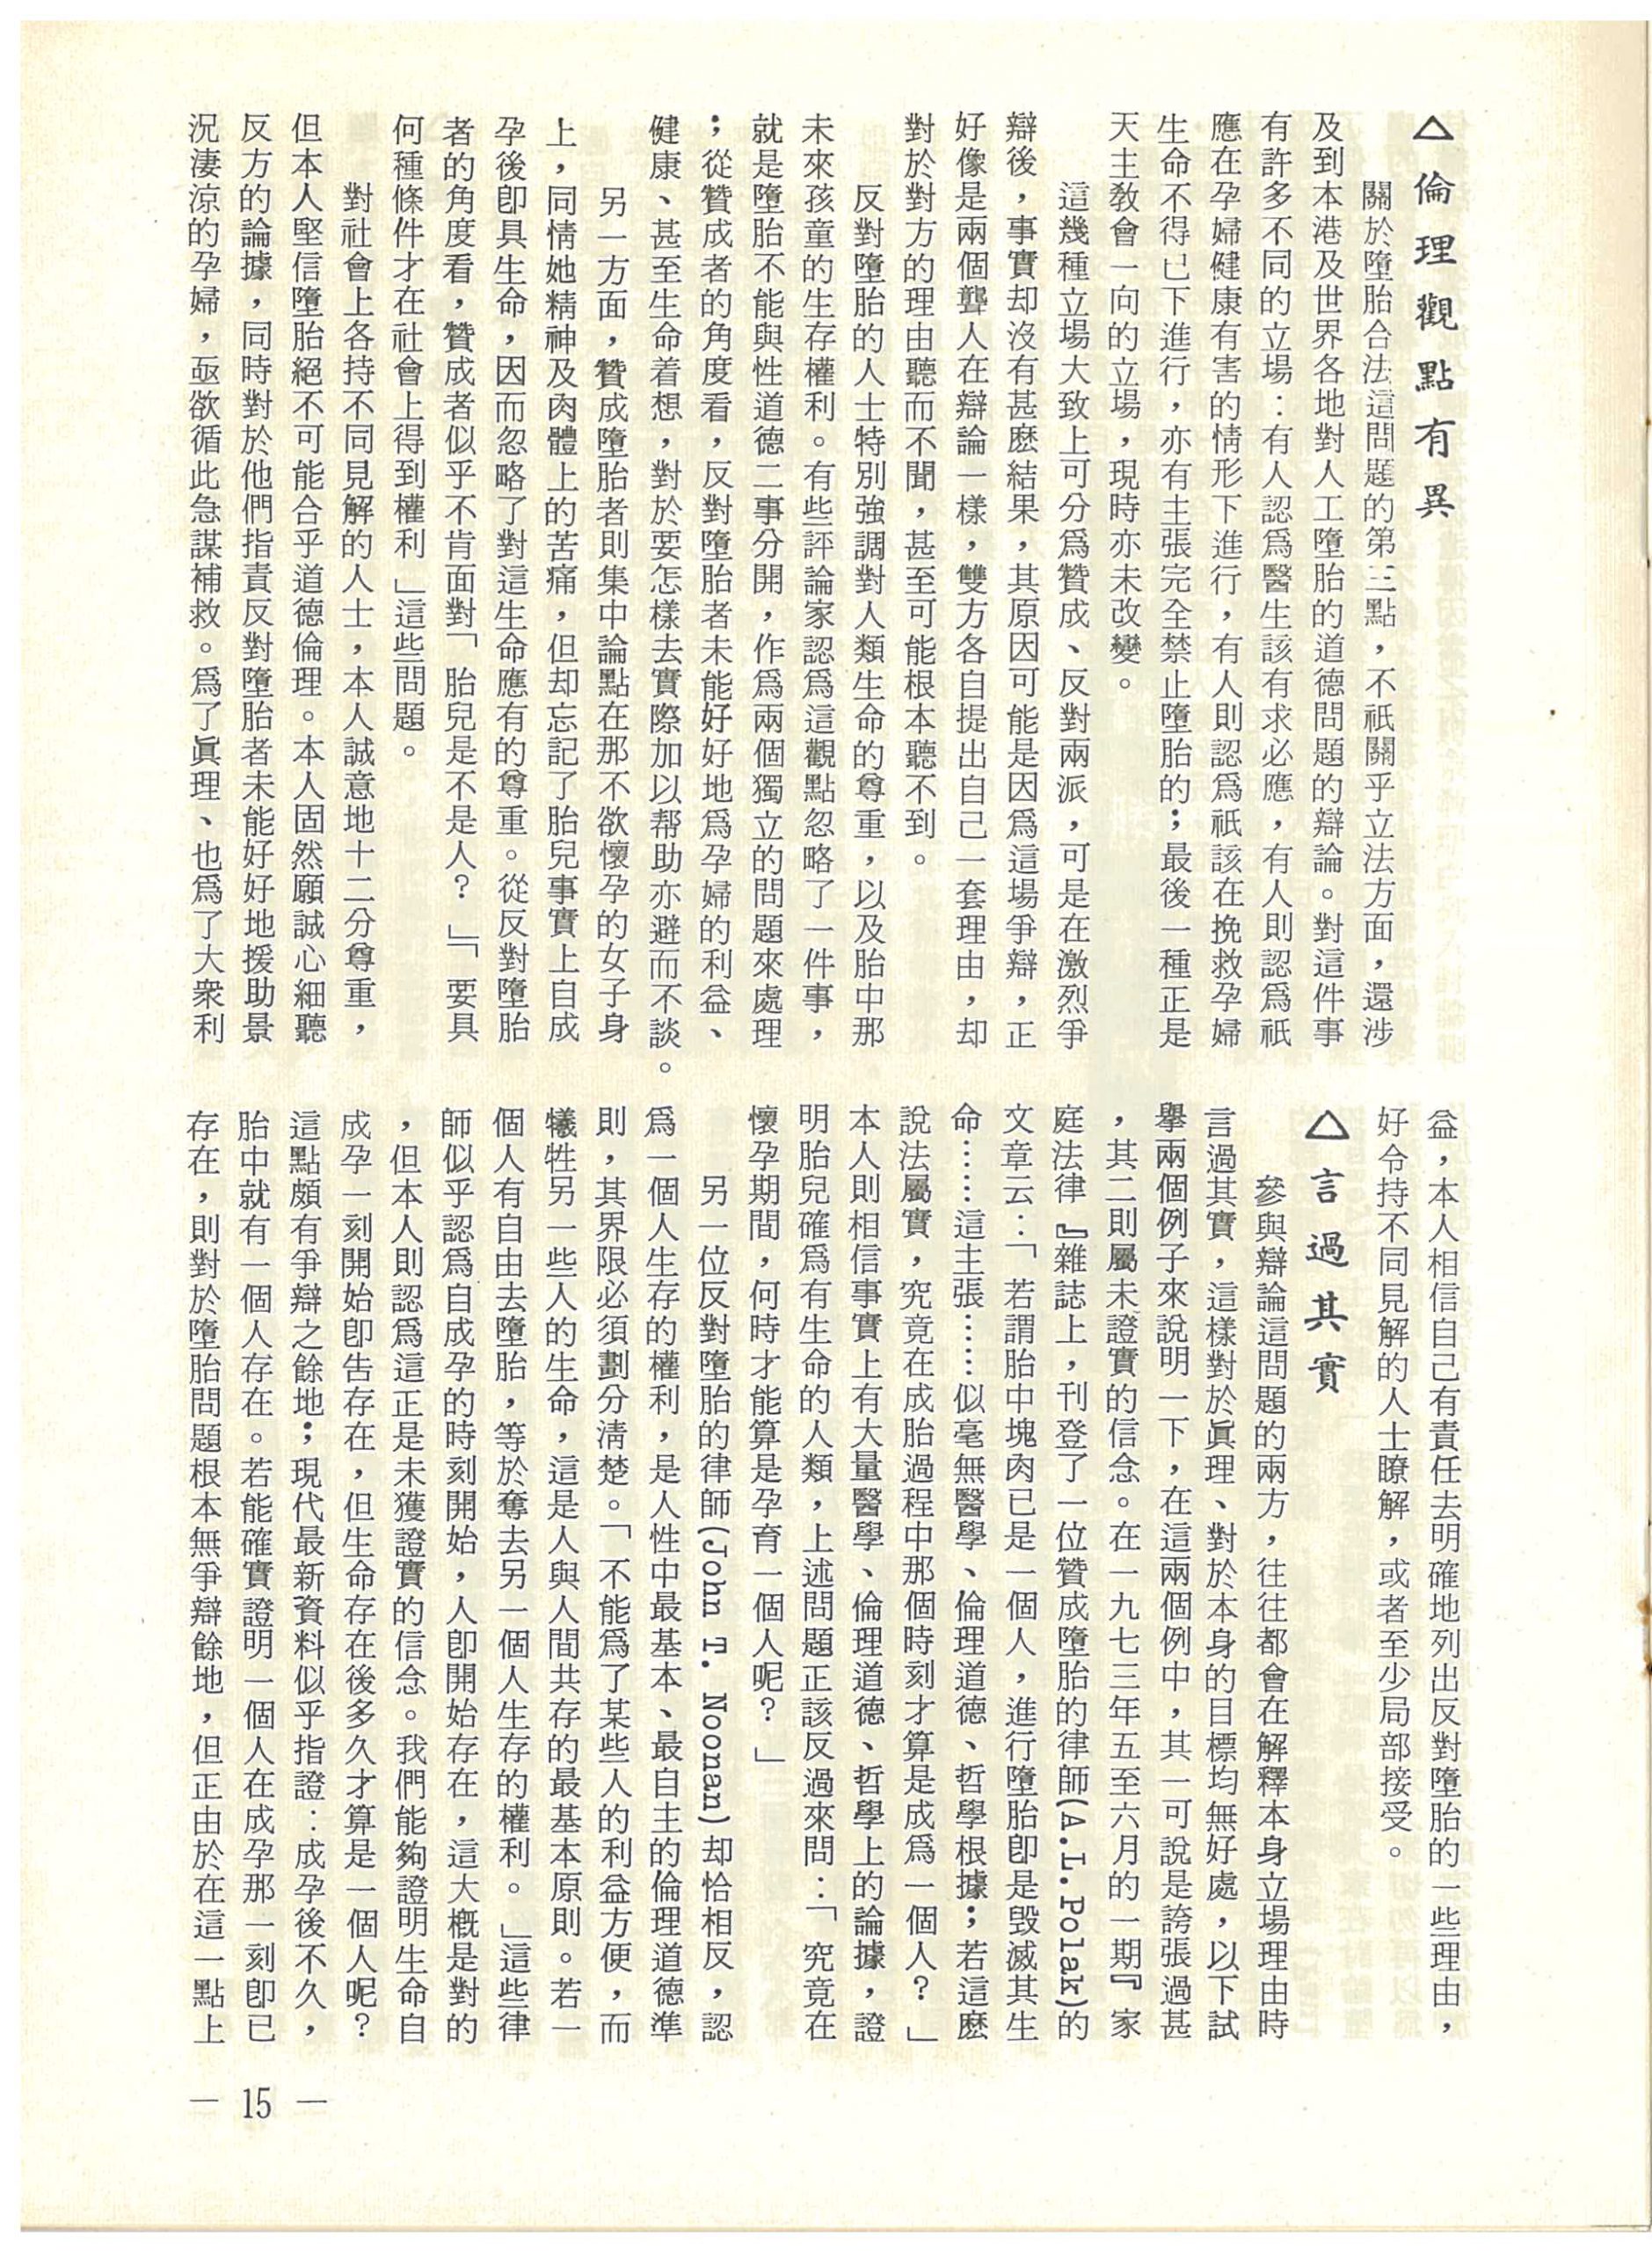 △倫理觀點有異
關於墮胎合法這問題的第三點，不祇關乎立法方面，還涉
及到本港及世界各地對人工墮胎的道德問題的辯論。對這件事
有許多不同的立場：有人認爲醫生該有求必應，有人則認爲祇
應在孕婦健康有害的情形下進行，有人則認爲祇該在挽救孕婦
生命不得已下進行，亦有主張完全禁止墮胎的；最後一種正是
天主教會一向的立場，現時亦未改變。
這幾種立場大致上可分爲贊成、反對兩派，可是在激烈爭
辯後，事實却沒有甚麽結果，其原因可能是因爲這場爭辯，正
好像是兩個聾人在辯論一樣，雙方各自提出自己一套理由，却
對於對方的理由聽而不聞，甚至可能根本聽不到。
反對墮胎的人士特別強調對人類生命的尊重，以及胎中那
未來孩童的生存權利。有些評論家認爲這觀點忽略了一件事，
就是墮胎不能與性道德二事分開，作爲兩個獨立的問題來處理
；從贊成者的角度看，反對墮胎者未能好好地爲孕婦的利益、
健康、甚至生命着想，對於要怎樣去實際加以帮助亦避而不談。
另一方面，贊成墮胎者則集中論點在那不欲懷孕的女子身
上，同情她精神及肉體上的苦痛，但却忘記了胎兒事實上自成
孕後卽具生命，因而忽略了對這生命應有的尊重。從反對墮胎
者的角度看，贊成者似乎不肯面對「胎兒是不是人？」「要具
何種條件才在社會上得到權利」這些問題。
對社會上各持不同見解的人士，本人誠意地十二分尊重，
但本人堅信墮胎絕不可能合乎道德倫理。本人固然願誠心細聽
反方的論據，同時對於他們指責反對墮胎者未能好好地援助景
況淒涼的孕婦，亟欲循此急謀補救。爲了眞理、也爲了大衆利
益，本人相信自己有責任去明確地列出反對墮胎的一些理由，
好令持不同見解的人士瞭解，或者至少局部接受。
△言過其實
參與辯論這問題的兩方，往往都會在解釋本身立場理由時
言過其實，這樣對於眞理、對於本身的目標均無好處，以下試
擧兩個例子來說明一下，在這兩個例中，其一可說是誇張過甚
，其二則屬未證實的信念。在一九七三年五至六月的一期『家
庭法律』雜誌上，刊登了一位贊成墮胎的律師(A.L.Polak)的
文章云：「若謂胎中塊肉已是一個人，進行墮胎卽是毁滅其生
命……這主張……似毫無醫學、倫理道德、哲學根據；若這麽
說法屬實，究竟在成胎過程中那個時刻才算是成爲一個人？」
本人則相信事實上有大量醫學、倫理道德、哲學上的論據，證
明胎兒確爲有生命的人類，上述問題正該反過來問：「究竟在
懷孕期間，何時才能算是孕育一個人呢？」
另一位反對墮胎的律師(John T. Noonan)却恰相反，認
爲一個人生存的權利，是人性中最基本、最自主的倫理道德準
則，其界限必須劃分淸楚。「不能爲了某些人的利益方便，而
犧牲另一些人的生命，這是人與人間共存的最基本原則。若一
個人有自由去墮胎，等於奪去另一個人生存的權利。」這些律
師似乎認爲自成孕的時刻開始，人卽開始存在，這大概是對的
，但本人則認爲這正是未獲證實的信念。我們能夠證明生命自
成孕一刻開始卽告存在，但生命存在後多久才算是一個人呢？
這點頗有爭辯之餘地；現代最新資料似乎指證：成孕後不久，
胎中就有一個人存在。若能確實證明一個人在成孕那一刻卽已
存在，則對於墮胎問題根本無爭辯餘地，但正由於在這一點上
— 15 —